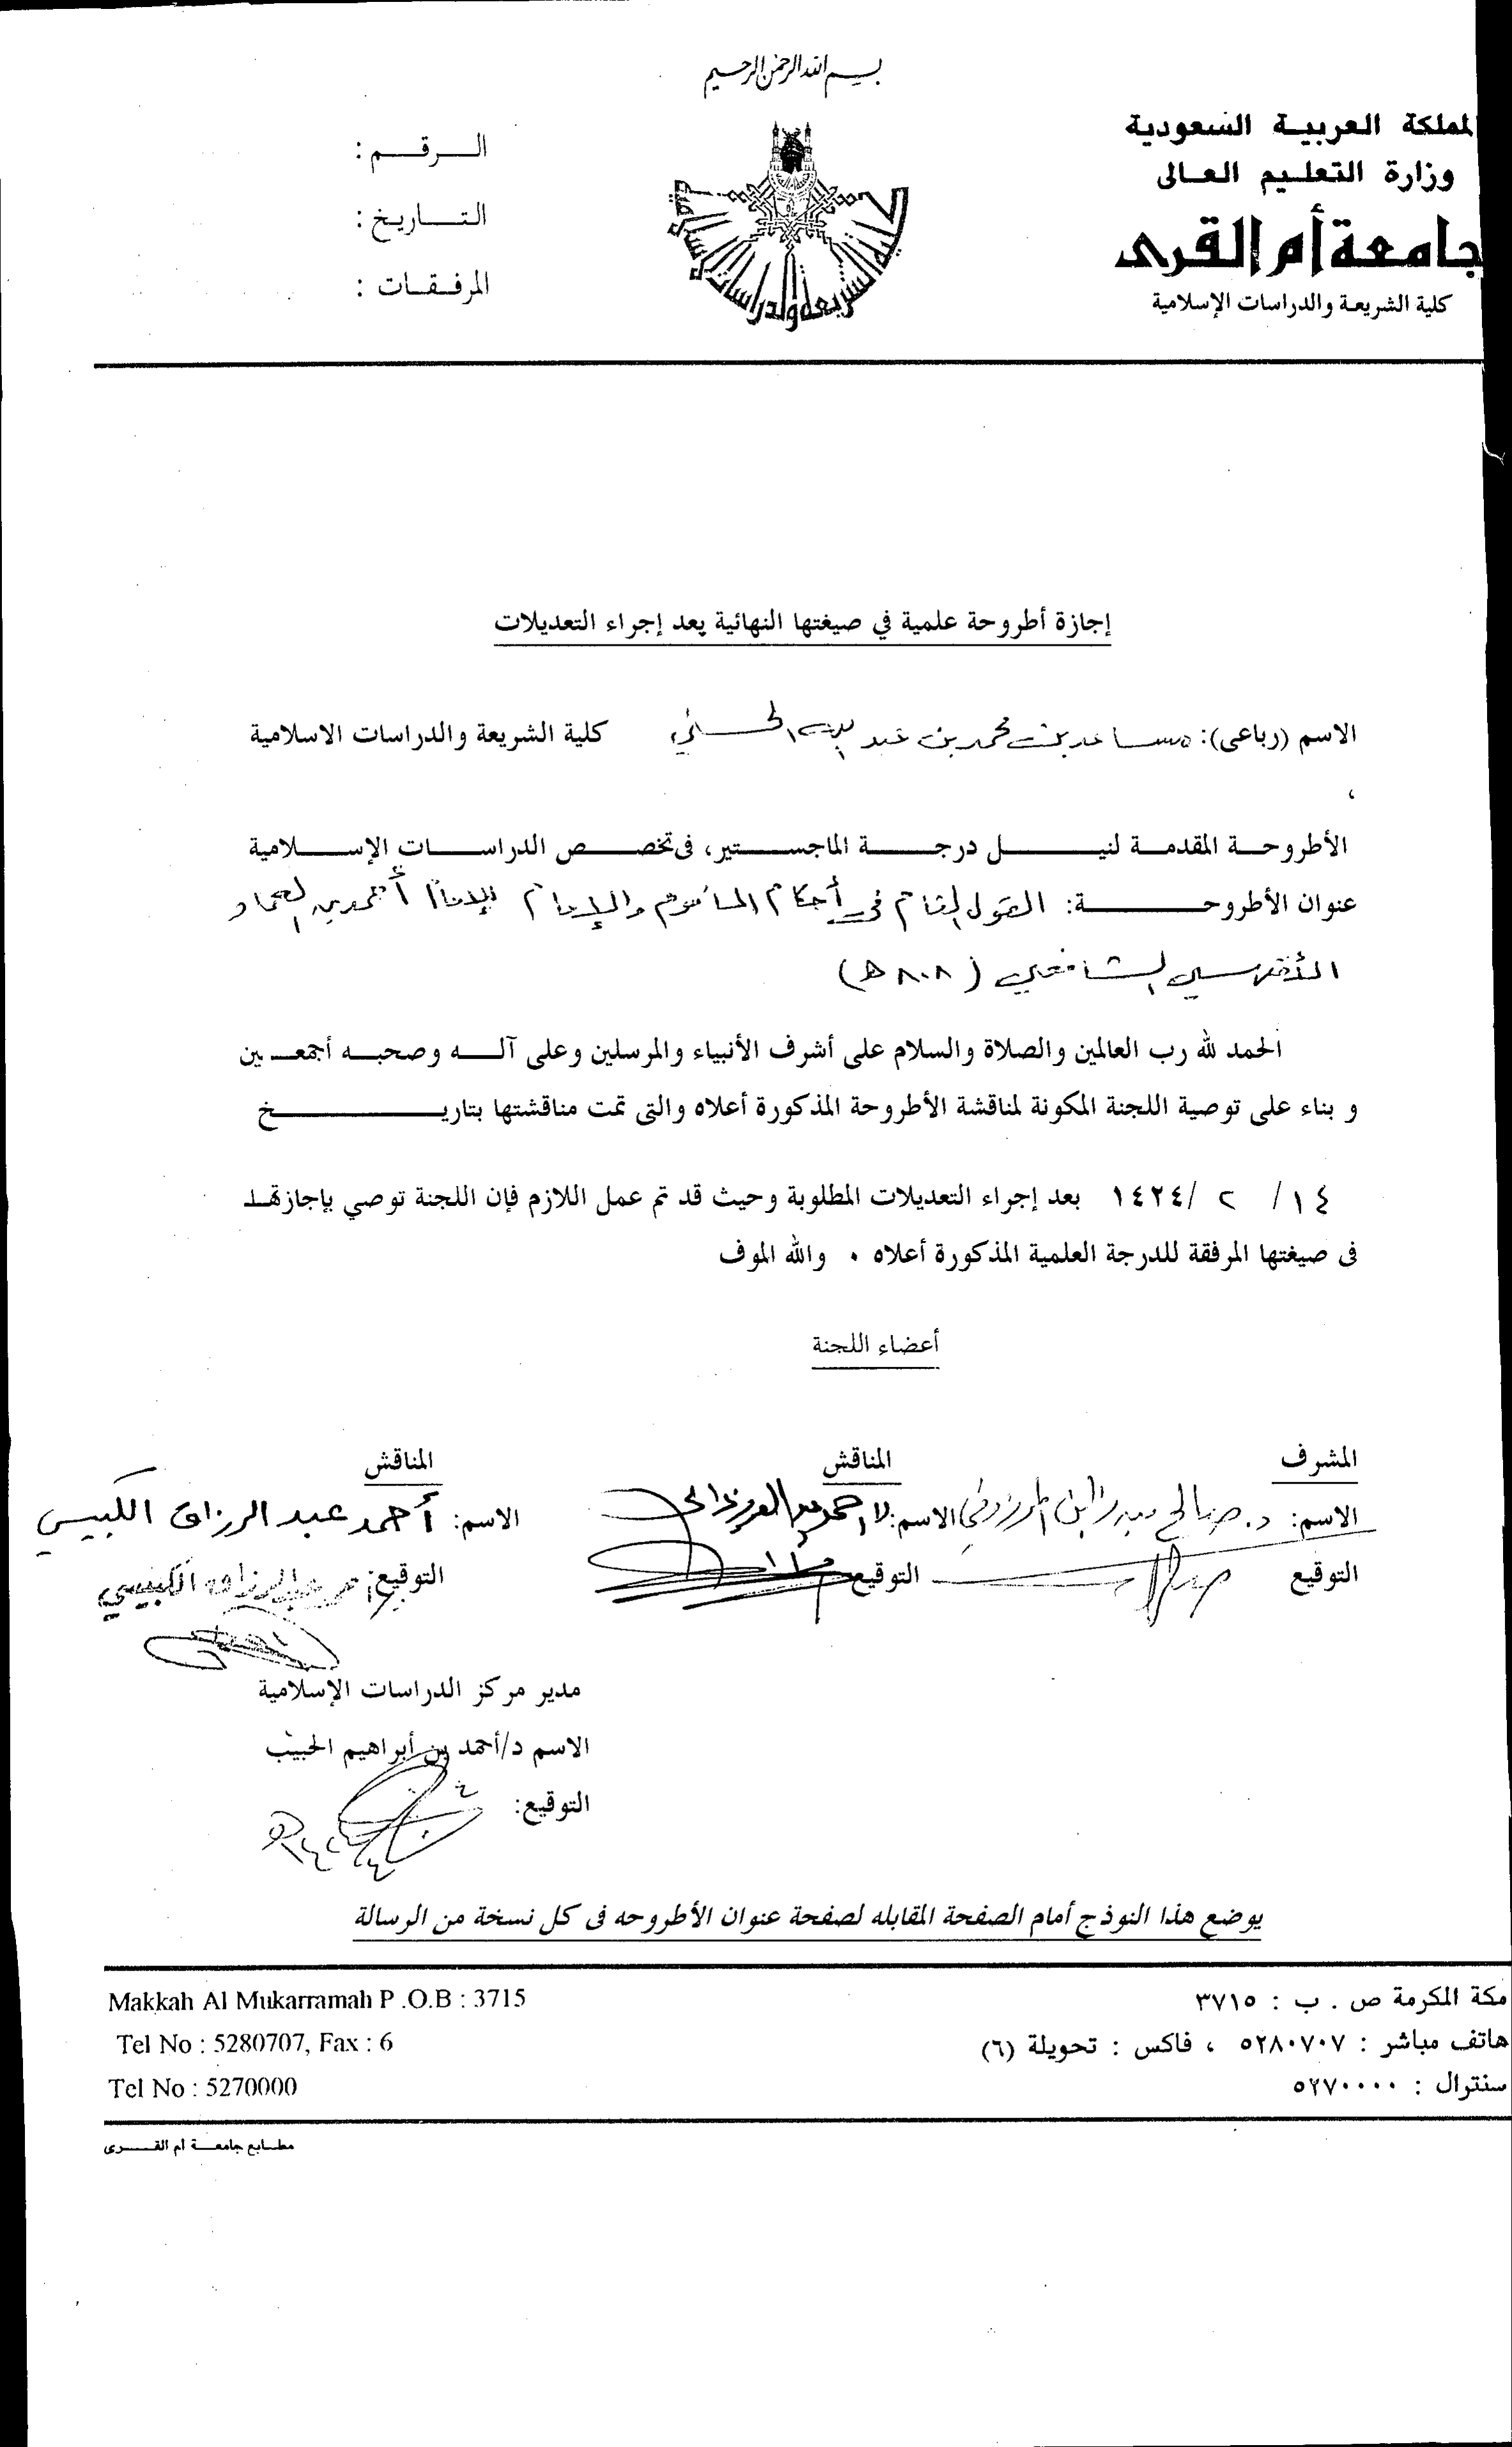 بسم الله الرحمن الرحيم
المملكة العربية السعودية
وزارة التعليم العالى
جامعة أم القرى
كلية الشريعة والدراسات الإسلامية
الرقم :
التاريخ :
المرفقات :
إجازة أطروحة علمية في صيغتها النهائية بعد إجراء التعديلات
الاسم (رباعى): مساعد بن محمد بن عبد الله كلية الشريعة والدراسات الاسلامية
،
الأطروحة المقدمة لنيل درجة الماجستير، فى تخصص الدراسات الإسلامية
عنوان الأطروحة: القول التام في أحكام المأموم والإمام للإمام أحمد بن العماد
الأقفهسي الشافعي (٨٠٨ هـ)
الحمد لله رب العالمين والصلاة والسلام على أشرف الأنبياء والمرسلين وعلى آله وصحبه أجمعين
و بناء على توصية اللجنة المكونة لمناقشة الأطروحة المذكورة أعلاه والتى تمت مناقشتها بتاريخ
١٤ / ٢ /١٤٢٤ بعد إجراء التعديلات المطلوبة وحيث قد تم عمل اللازم فإن اللجنة توصي بإجازتها
فى صيغتها المرفقة للدرجة العلمية المذكورة أعلاه . والله الموف
أعضاء اللجنة
المشرف
الاسم: د. صالح المرزوقي
التوقيع
المناقش
الاسم:
التوقيع
المناقش
الاسم: أحمد عبد الرزاق الكبيسي
التوقيع: عبد الرزاق الكبيسي
مدير مركز الدراسات الإسلامية
الاسم د/أحمد بن أبراهيم الحبيب
التوقيع:
يوضع هذا النوذج أمام الصفحة المقابله لصفحة عنوان الأطروحه فى كل نسخة من الرسالة
مكة المكرمة ص . ب : ٣٧١٥
هاتف مباشر : ٥٢٨٠٧٠٧ ، فاكس : تحويلة (٦)
سنترال : ٥٢٧٠٠٠٠
Makkah Al Mukarramah P .O.B : 3715
Tel No : 5280707, Fax : 6
Tel No : 5270000
مطابع جامعة ام القرى